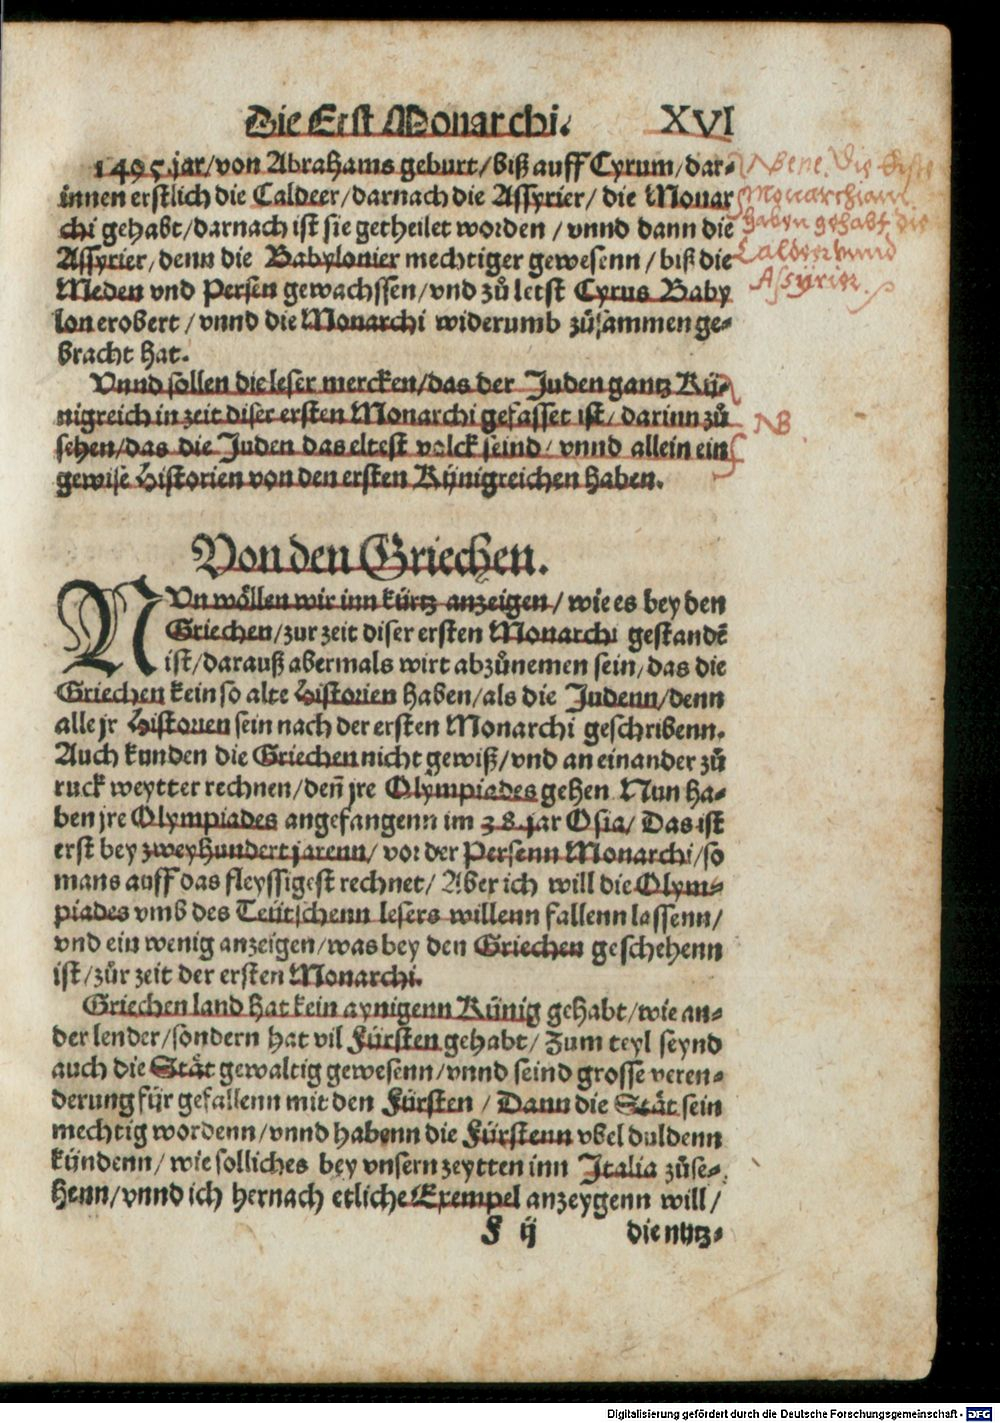 Die Erst Monarchi. XVI
1495. jar/von Abrahams geburt/biß auff Cyrum/dar-
innen erstlich die Caldeer/darnach die Assyrier/ die Monar
chi gehabt/darnach ist sie getheilet worden/ vnnd dann die
Assyrier/denn die Babylonier mechtiger gewesenn/biß die
Meden vnd Persen gewachssen/vnd zů letst Cyrus Baby
lon erobert/vnnd die Monarchi widerumb zůsammen ge-
bracht hat.
Vnnd sollen die leser mercken/das der Juden gantz Kü-
nigreich in zeit diser ersten Monarchi gefasset ist/ darinn zů
sehen/das die Juden das eltest volck seind/ vnnd allein ein
gewise Historien von den ersten Künigreichen haben.
N Bene. Die Erste
Monarchiam
haben gehabt die
Caldeer vnnd
Assyrier.
NB
Von den Griechen.
NVn wöllen wir inn kürtz anzeigen/ wie es bey den
Griechen/zur zeit diser ersten Monarchi gestandē
ist/darauß abermals wirt abzůnemen sein/das die
Griechen kein so alte Historien haben/als die Judenn/denn
alle jr Historien sein nach der ersten Monarchi geschribenn.
Auch kunden die Griechen nicht gewiß/vnd an einander zů
ruck weytter rechnen/deñ jre Olympiades gehen Nun ha-
ben jre Olympiades angefangenn im 38. jar Osia/ Das ist
erst bey zweyhundert jarenn/ vor der Persenn Monarchi/so
mans auff das fleyssigest rechnet/ Aber ich will die Olym-
piades vmb des Teütschenn lesers willenn fallenn lassenn/
vnd ein wenig anzeigen/was bey den Griechen geschehenn
ist/zůr zeit der ersten Monarchi.
Griechen land hat kein aynigenn Künig gehabt/wie an-
der lender/sondern hat vil Fürsten gehabt/ Zum teyl seynd
auch die Stät gewaltig gewesenn/vnnd seind grosse veren-
derung für gefallenn mit den Fürsten/ Dann die Stät sein
mechtig wordenn/vnnd habenn die Fürstenn vbel duldenn
kündenn/ wie solliches bey vnsern zeytten inn Italia zůse-
henn/vnnd ich hernach etliche Exempel anzeygenn will/
F ij die nytz-
Digitalisierung gefördert durch die Deutsche Forschungsgemeinschaft - DFG